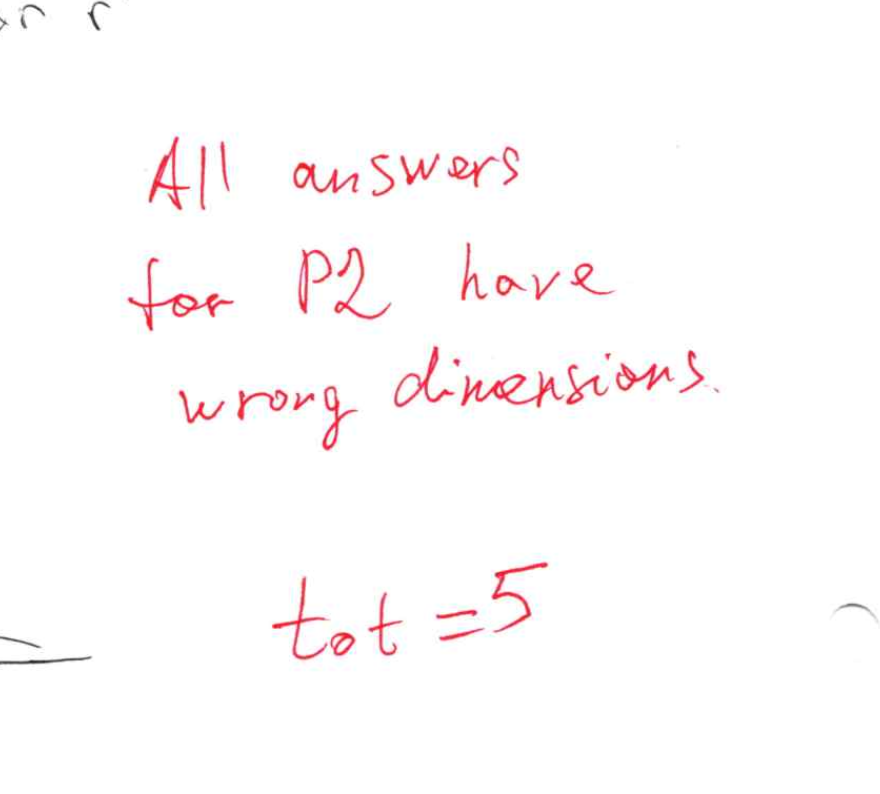 All answers
for P2 have
wrong dimensions.
tot = 5